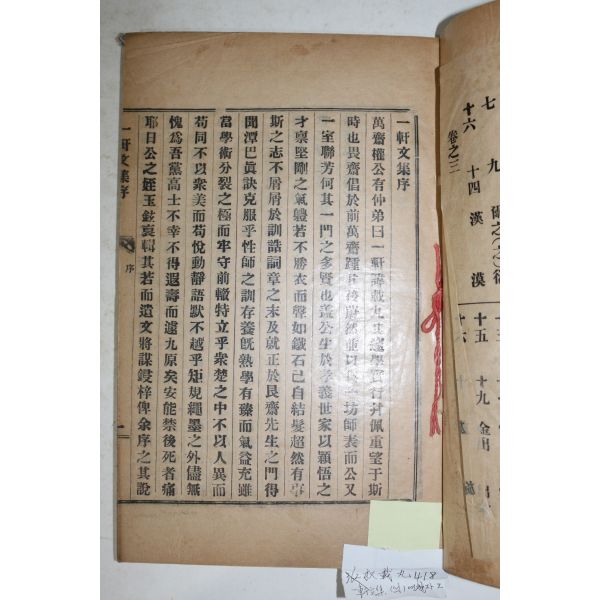 一軒文集序
萬齋權公有仲弟曰一軒諱載九其遠學實行幷佩重望于斯
時也畏齋倡於前萬齋踵其後蔚然並以坊師表而公又
一室聯芳何其一門之多賢也蓋公生於孝義世家以穎悟之
才禀堅剛之氣軆若不勝衣而聲如鐵石已自結髮超然有事
斯之志不屑屑於訓誥詞章之末及就正於艮齋先生之門得
聞潭巴眞訣克服乎性師之訓存養旣熟學有臻而氣益充雖
當學術分裂之極而牢守前轍特立乎衆楚之中不以人異而
苟同不以衆美而苟悅動靜語默不越乎矩規繩墨之外儘無
愧爲吾黨高士不幸不得遐壽而遽九原矣安能禁後死者痛
耶日公之姪玉鉉裒輯其若而遺文將謀鋟梓俾余序之其說
一軒文集序
序
一
卷之三
七 九
十六 十四 漢 漠
十五 十九
十六
權載九 418